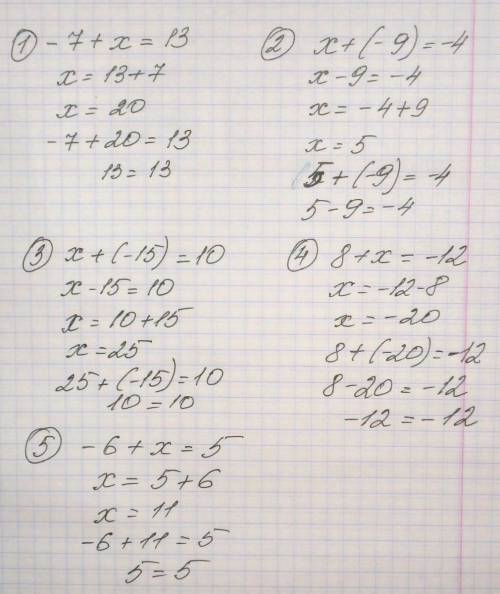 ① -7 + x = 13
x = 13+7
x = 20
-7 + 20 = 13
13 = 13
② x + (-9) = -4
x - 9 = -4
x = -4 + 9
x = 5
5 + (-9) = -4
5 - 9 = -4
③ x + (-15) = 10
x - 15 = 10
x = 10 + 15
x = 25
25 + (-15) = 10
10 = 10
④ 8 + x = -12
x = -12 - 8
x = -20
8 + (-20) = -12
8 - 20 = -12
-12 = -12
⑤ -6 + x = 5
x = 5 + 6
x = 11
-6 + 11 = 5
5 = 5